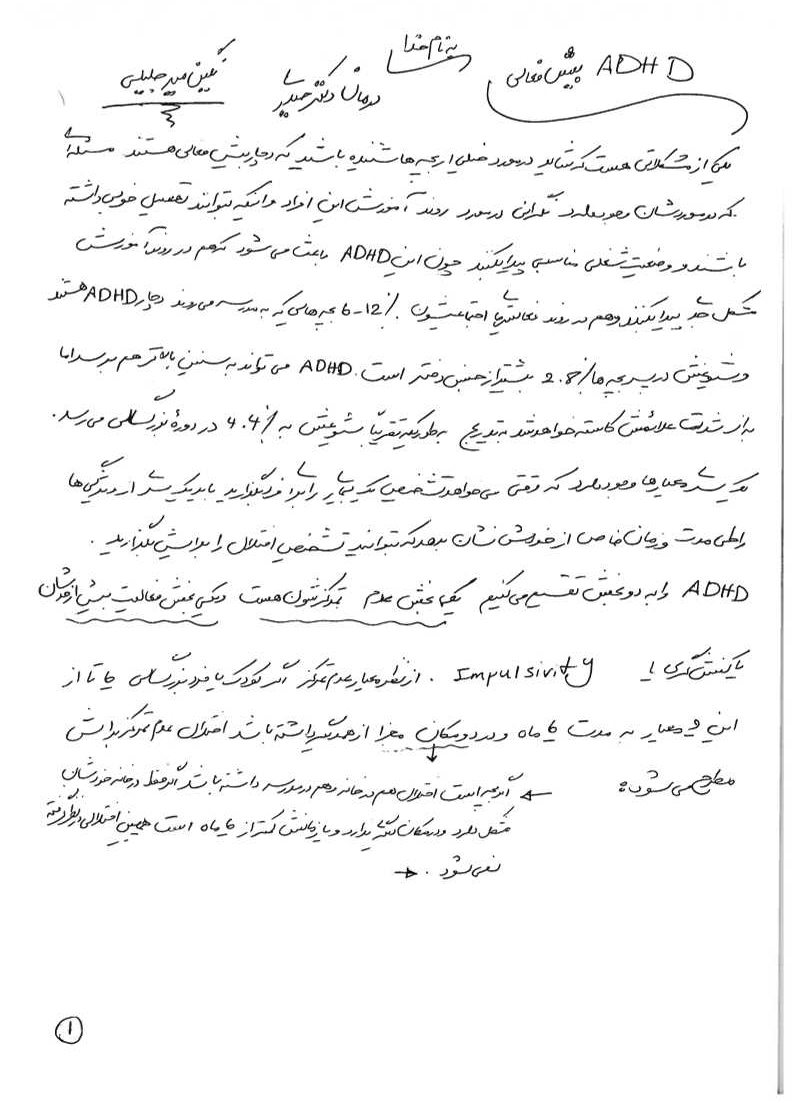 به نام خدا
ADHD بیش فعالی
درمان دکتر حیدری
نگین میرجلیلی
یکی از مشکلاتی هست که شاید درمورد خیلی از بچه ها شنیده باشید که دچار بیش فعالی هستند مسئله ای
که درموردشان وجود دارد نگرانی درمورد روند آموزش این افراد و اینکه بتوانند تحصیل خوبی داشته
باشند و وضعیت شغلی مناسبی پیدا بکنند چون این ADHD باعث می شود که هم در روند آموزش
مشکل پیدا بکنند و هم در روند فعالیتهای اجتماعیشون. 6-12٪ بچه هایی که به مدرسه می روند دچار ADHD هستند
و شیوعش در پسر بچه ها 2.8٪ بیشتر از جنس دختر است. ADHD می تواند به سنین بالاتر هم برسد اما
از شدت علائمش کاسته خواهد شد به تدریج به طوریکه تقریباً شیوعش به 4.4٪ در دورۀ بزرگسالی می رسد.
یک سری معیارها وجود دارد که وقتی می خواهد تشخیص یک بیماری را برا فرد بگذارید باید یک سری از ویژگی ها
را طی مدت و زمان خاص از خودش نشان بدهد که بتوانید تشخیص اختلال را برایش بگذارید.
ADHD را به دو بخش تقسیم می کنیم یک بخش عدم تمرکزشون هست و یکی بخش فعالیت بیش از حدشان
یا کنش گری یا Impulsivity. از نظر معیار عدم تمرکز اگر کودک یا فرد بزرگسالی 6 تا از
این 9 معیار به مدت 6 ماه و در دو مکان مجزا از همدیگر داشته باشد اختلال عدم تمرکز برایش
مطرح می شود:
اگر بچه است اختلال هم در خانه و هم در مدرسه داشته باشد اگر فقط در خانه خودشان
مشکل دارد و در مکان دیگر ندارد و یا زمانش کمتر از 6 ماه است همچین اختلالی در نظر گرفته
نمی شود.
1